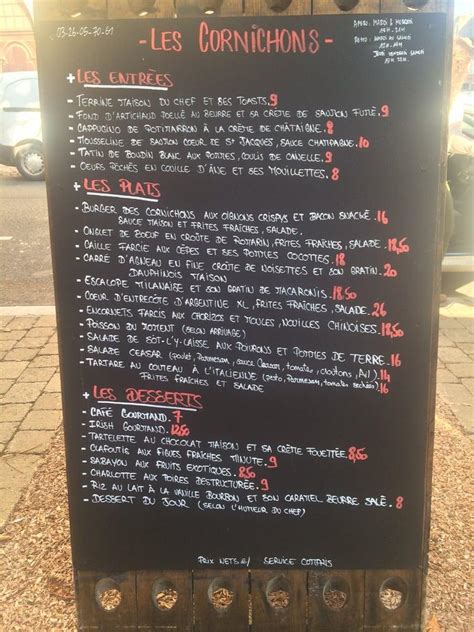 03-26-05-70-61
- LES CORNICHONS -
+ LES ENTRÉES
- TERRINE MAISON DU CHEF ET SES TOASTS. 9
- FOND D'ARTICHAUD POELLÉ AU BEURRE ET SA CRÈME DE SAUMON FUMÉ. 9
- CAPPUCINO DE POTIMARRON À LA CRÈME DE CHÂTAIGNE. 8
- MOUSSELINE DE SAUMON COEUR DE ST JACQUES, SAUCE CHAMPAGNE. 10
- TATIN DE BOUDIN BLANC AUX POMMES, COULIS DE CANNELLE. 9
- OEUFS POCHÉS EN COUILLE D'ÂNE ET SES MOUILLETTES. 8
+ LES PLATS
- BURGER DES CORNICHONS AUX OIGNONS CRISPYS ET BACON SNACKÉ. 16
SAUCE MAISON ET FRITES FRAÎCHES, SALADE.
- ONGLET DE BOEUF EN CROÛTE DE ROMARIN, FRITES FRAÎCHES, SALADE. 18,50
- CAILLE FARCIE AUX CÈPES ET SES POMMES COCOTTES. 18
- CARRÉ D'AGNEAU EN FINE CROÛTE DE NOISETTES ET SON GRATIN. 20
DAUPHINOIS MAISON
- ESCALOPE MILANAISE ET SON GRATIN DE MACARONIS. 18,50
- COEUR D'ENTRECÔTE D'ARGENTINE XL, FRITES FRAÎCHES, SALADE. 26
- ENCORNETS FARCIS AUX CHORIZOS ET MOULES, NOUILLES CHINOISES. 18,50
- POISSON DU MOMENT (SELON ARRIVAGE)
- SALADE DE SOT-L'Y-LAISSE AUX POIVRONS ET POMMES DE TERRE. 16
- SALADE CEASAR (poulet, Parmesan, sauce Ceasar, tomates, croutons, Ail) 14
- TARTARE AU COUTEAU À L'ITALIENNE (pesto, Parmesan, tomates sechées) 16
FRITES FRAÎCHES ET SALADE
+ LES DESSERTS
- CAFÉ GOURMAND. 7
- IRISH GOURMAND. 12,50
- TARTELETTE AU CHOCOLAT MAISON ET SA CRÈME FOUETTÉE. 8,50
- CLAFOUTIS AUX FIGUES FRAÎCHES MINUTE. 9
- SABAYON AUX FRUITS EXOTIQUES. 8,50
- CHARLOTTE AUX POIRES DESTRUCTURÉE. 9
- RIZ AU LAIT À LA VANILLE BOURBON ET SON CARAMEL BEURRE SALÉ. 8
- DESSERT DU JOUR (SELON L'HUMEUR DU CHEF)
PRIX NETS €/ SERVICE COMPRIS